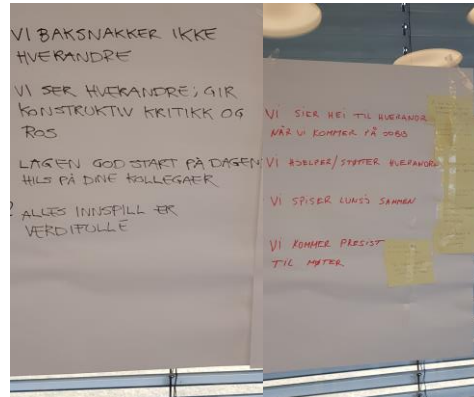 VI BAKSNAKKER IKKE
HVERANDRE
VI SER HVERANDRE; GIR
KONSTRUKTIV KRITIKK OG
ROS
LAGEN GOD START PÅ DAGEN
HILS PÅ DINE KOLLEGAER
ALLES INNSPILL ER
VERDIFULLE
VI SIER HEI TIL HVERANDR
NÅR VI KOMMER PÅ JOBB
VI HJELPER/STØTTER HVERANDRE
VI SPISER LUNSJ SAMMEN
VI KOMMER PRESIST
TIL MØTER